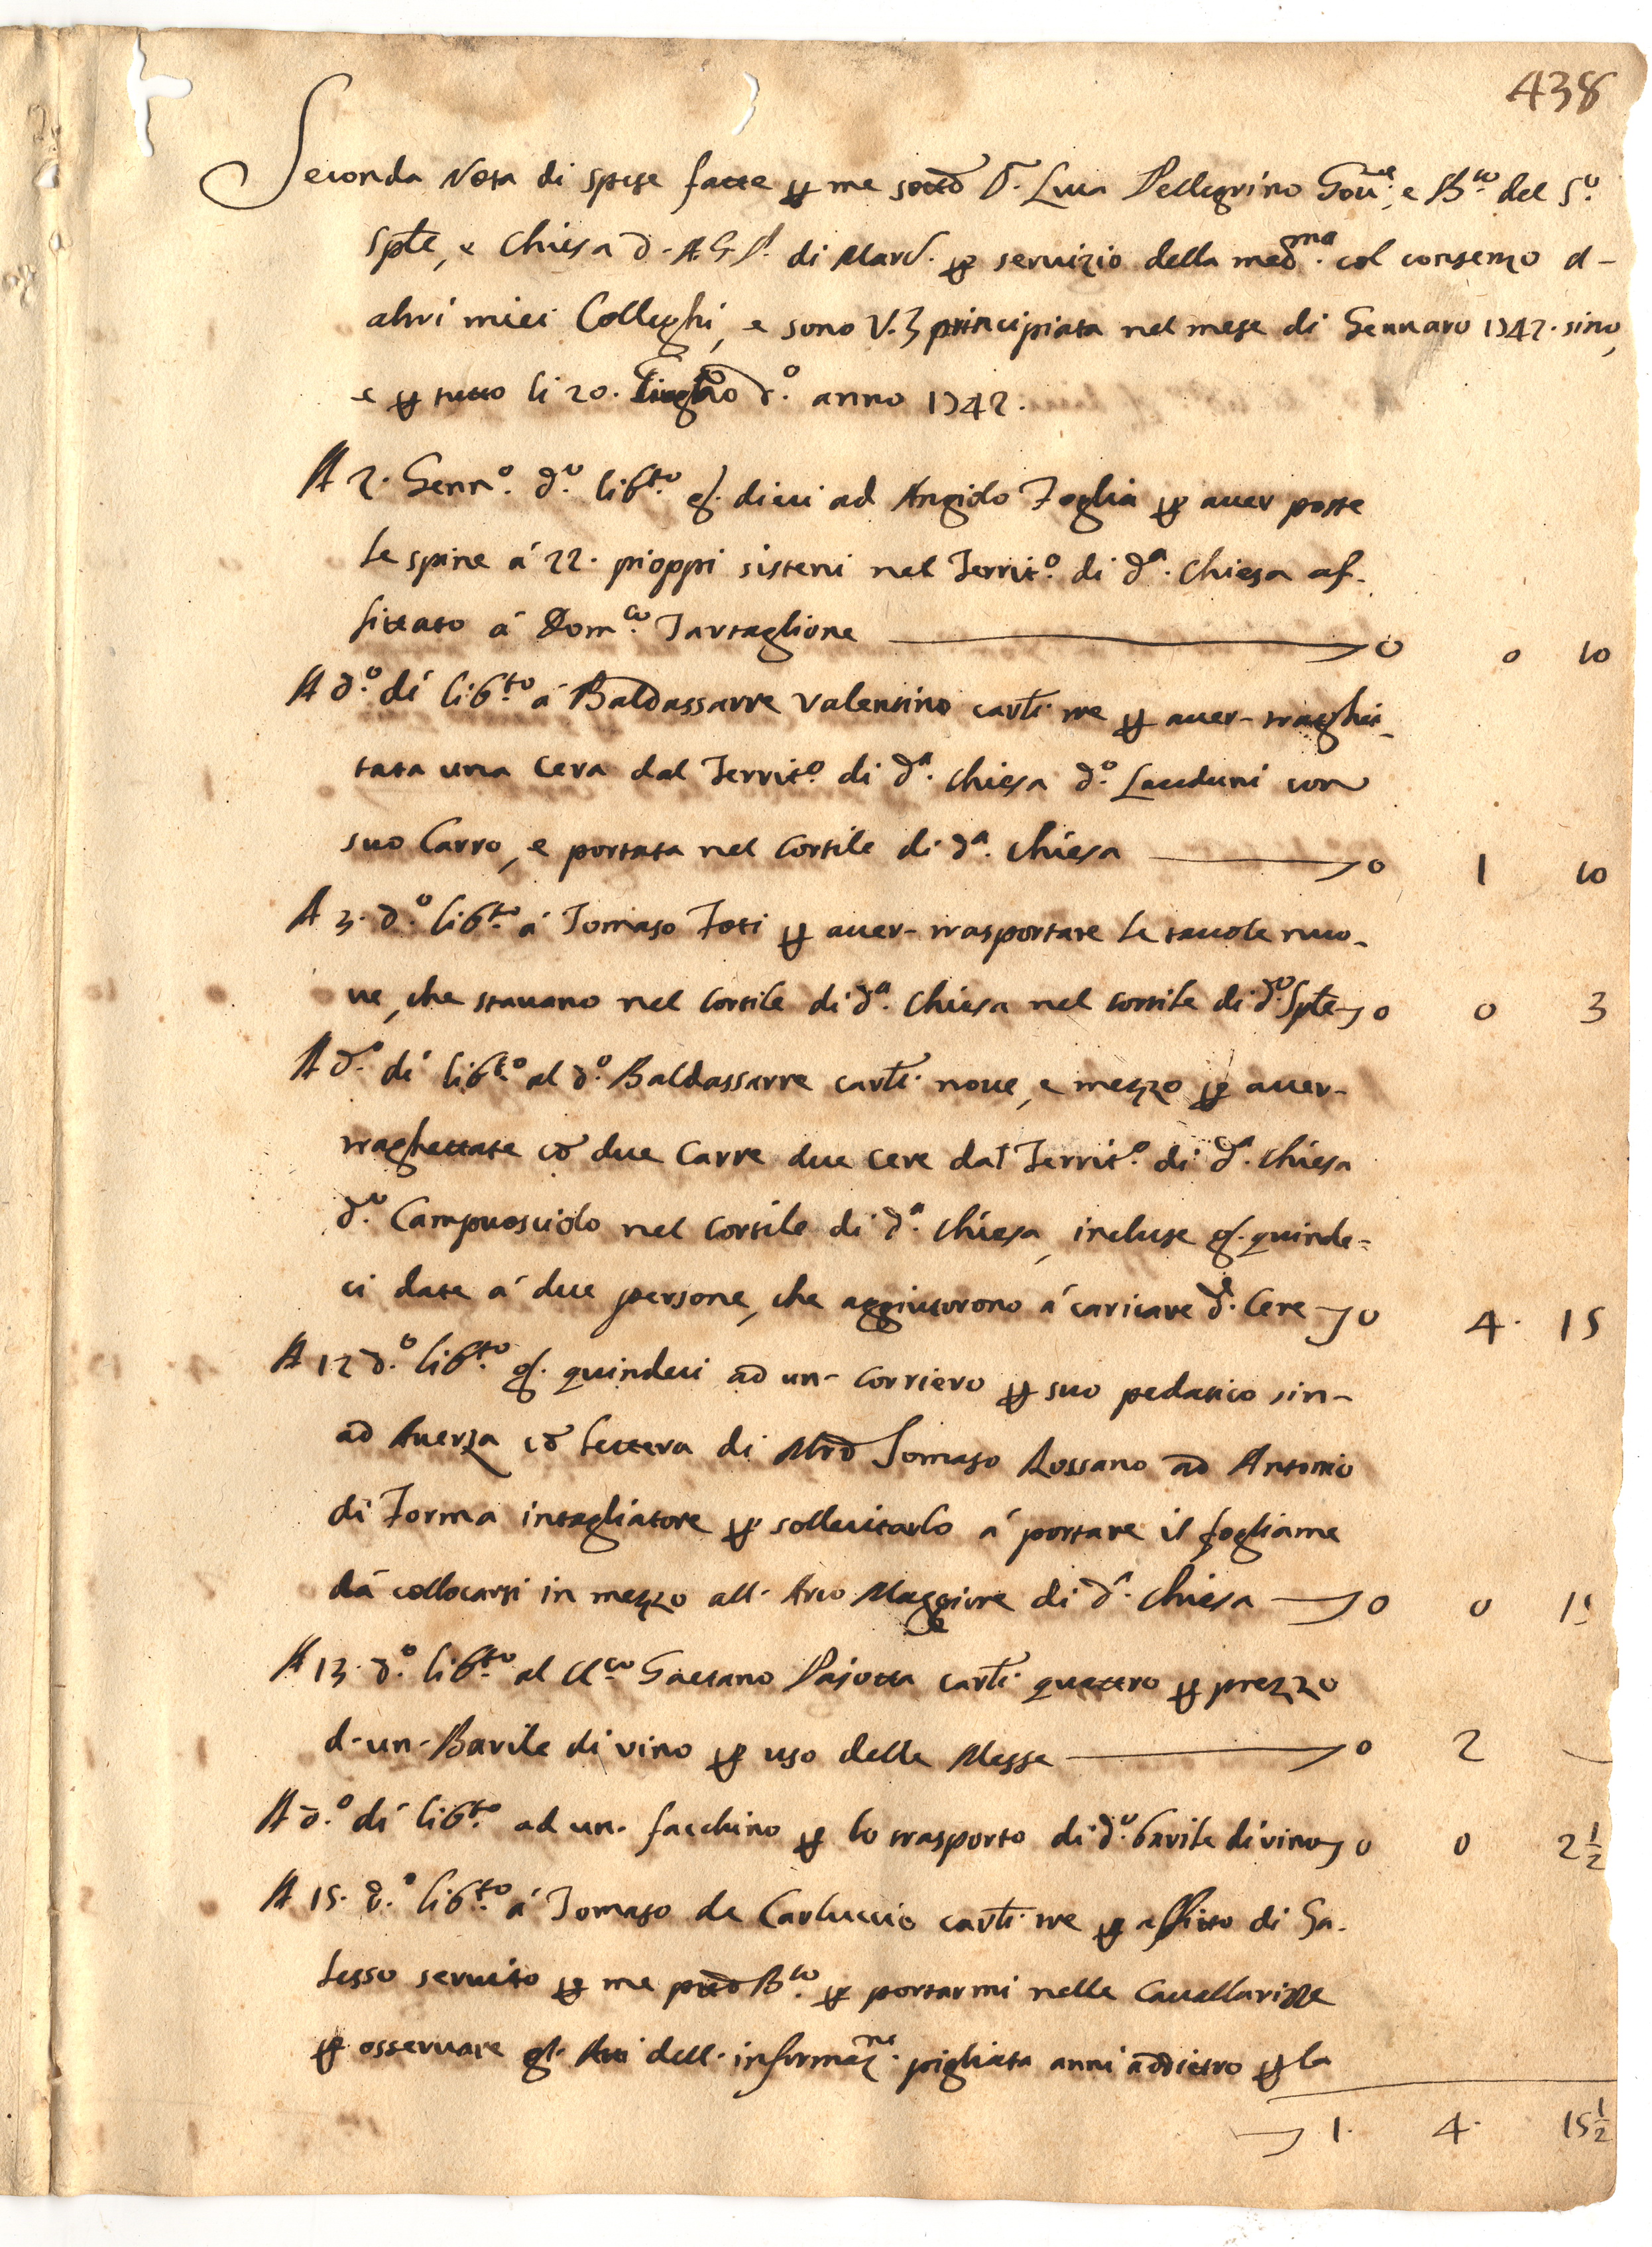 438
Seconda Nota di spese fatte per me sottō D. Luca Pellegrino Goure. e Bco. del So.
Spte, e Chiesa d. A. G. P. di Marc. per seruizio della medma. col consenzo d-
altri miei Colleghi, e sono V.3 principiata nel mese di Gennaro 1742. sino,
e per tutto li 20. Giugno do. anno 1742.
A 2. Gennro. do. libto. g. dieci ad Angiolo Foglia per auer poste
le spine á 22. pioppi sistenti nel Territo. di da. Chiesa af-
fittato á Domco. Tartaglione 0 0 10
A do. dí libto. á Baldassarre Valentino carli. tre per auer- traghit-
tata una Cera dal Territo. di da. Chiesa do. Lauduni con
suo Carro, e portata nel Cortile di da. Chiesa 0 1 10
A 3. do. libto. á Tomaso Foti per auer- trasportate le tauole nuo-
ue, che stauano nel Cortile di da. Chiesa nel cortile di do. Spte 0 0 3
A do. dí libto. al do. Baldassarre carli. noue, e mezzo per auer-
traghettate cō due Carre due cere dal Territo. di da. Chiesa
do. Campuosciolo nel Cortile di da. Chiesa, incluse g. quinde=
ci date á due persone, che aggiutorono á caricare de. Cere 0 4. 15
A 12 do. libto. g. quindeci ad un- Corriero per suo pedatico sin-
ad Auerza cō lettera di Mrō Tomaso Rossano ad Antonio
di Forma intagliatore per sollecitarlo á portare il fogliame
dá collocarsi in mezzo all- Arco Maggiore di da. Chiesa 0 0 15
A 13. do. libto. al Cl.co Gaetano Pajotta carli. quattro per prezzo
d-un-Barile di vino per uso delle Messe 0 2 -
A do. dí libto. ad un- facchino per lo trasporto di do. barile di vino 0 0 2½
A 15. do. libto. á Tomaso de Carluccio carli. tre per affitto di Ga-
lesso seruito per me pttō Bco. per portarmi nelle Cauallarizze
per osseruare gl- Atti dell- informazne. pigliata anni addietro per la
1. 4. 15½